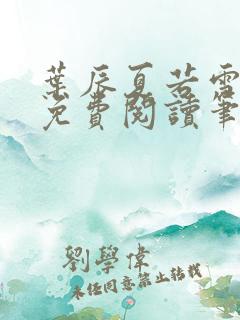 葉辰夏若雪
免費閱讀筆
劉學偉
未經同意禁止轉載